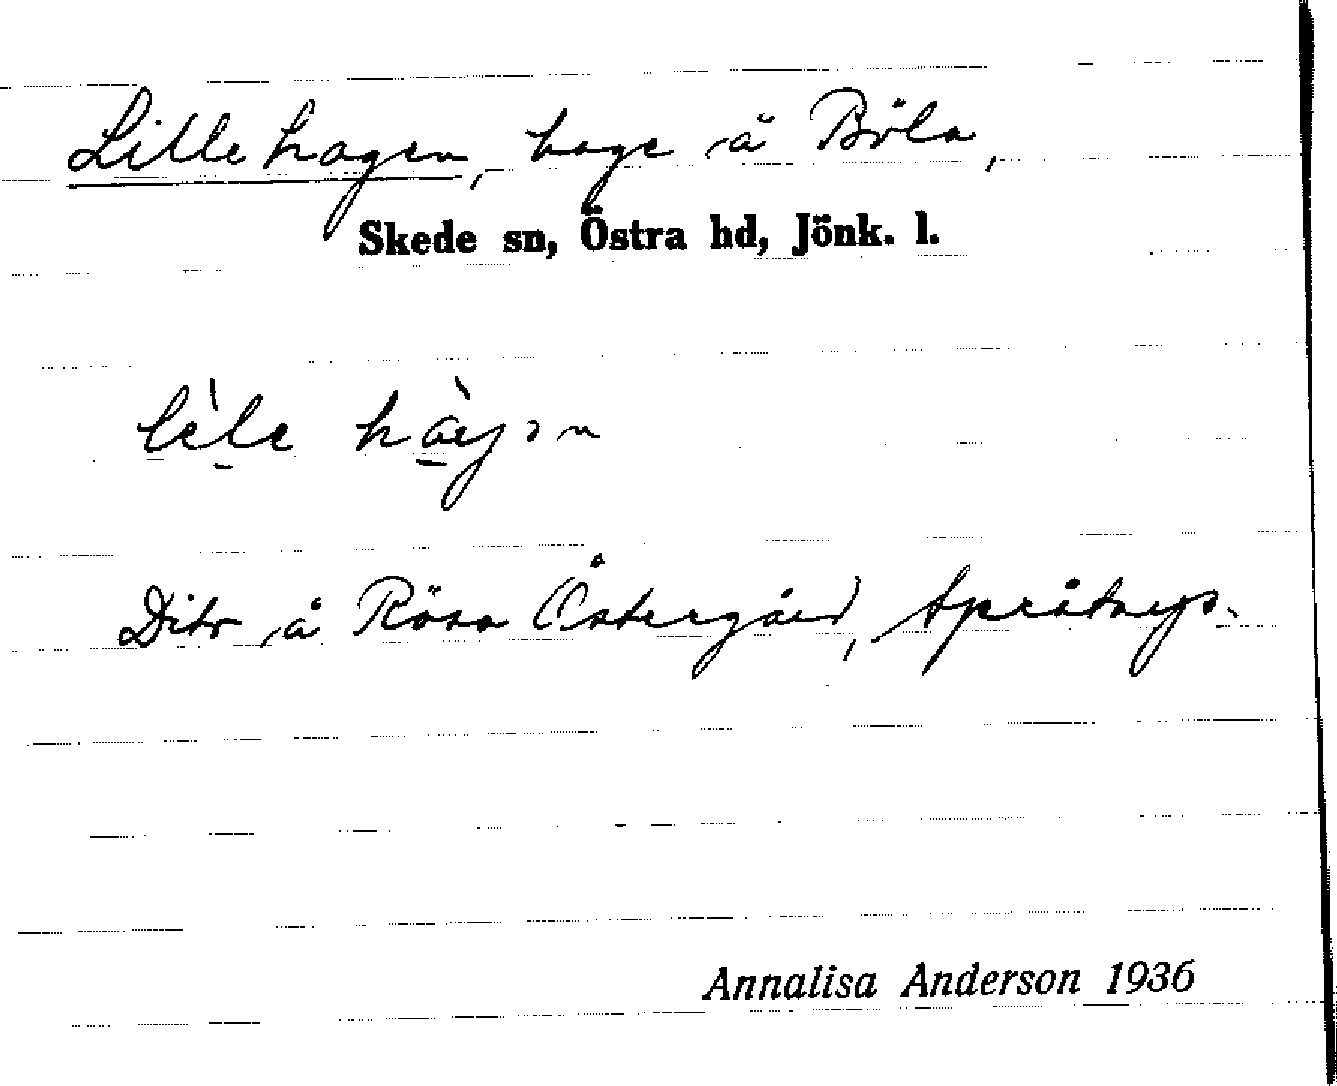 Lillehagen, hage å Böla,
Skede sn, Östra hd, Jönk. l.
lèle
Dito å Rösa Östergård,
Annalisa Anderson 1936